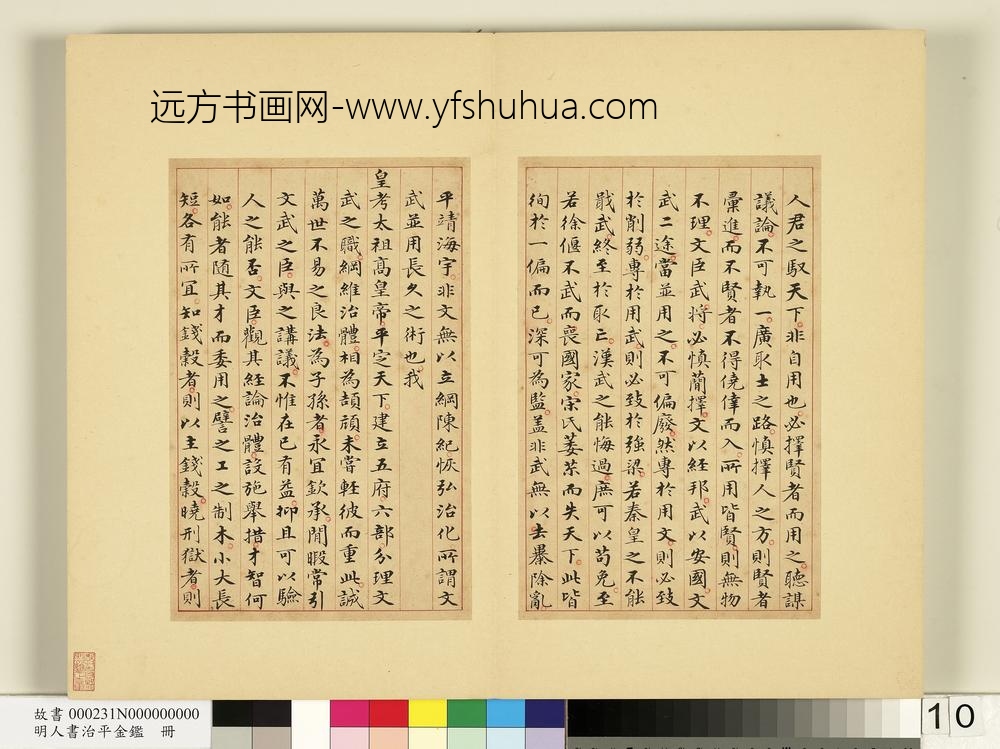 远方书画网-www.yfshuhua.com
人君之馭天下非自用也必擇賢者而用之聽謀
議論不可執一廣取士之路慎擇人之方則賢者
彙進而不賢者不得僥倖而入所用皆賢則無物
不理文臣武將必慎蕑擇文以經邦武以安國文
武二途當並用之不可偏廢然專於用文則必致
於削弱專於用武則必致於強梁若秦皇之不能
戢武終至於取亡漢武之能悔過庶可以苟免至
若徐偃不武而喪國家宋氏萎苶而失天下此皆
徇於一偏而已深可為監盖非武無以去暴除亂
平靖海宇非文無以立綱陳紀恢弘治化所謂文
武並用長久之術也我
皇考太祖高皇帝平定天下建立五府六部分理文
武之職綱維治體相為頡頏未嘗輊彼而重此誠
萬世不易之良法為子孫者永宜欽承閒暇常引
文武之臣與之講議不惟在已有益抑且可以驗
人之能否文臣觀其經論治體設施舉措才智何
如能者隨其才而委用之譬之工之制木小大長
短各有所宜知錢穀者則以主錢穀曉刑獄者則
故書 000231N000000000
明人書治平金鑑 冊
10